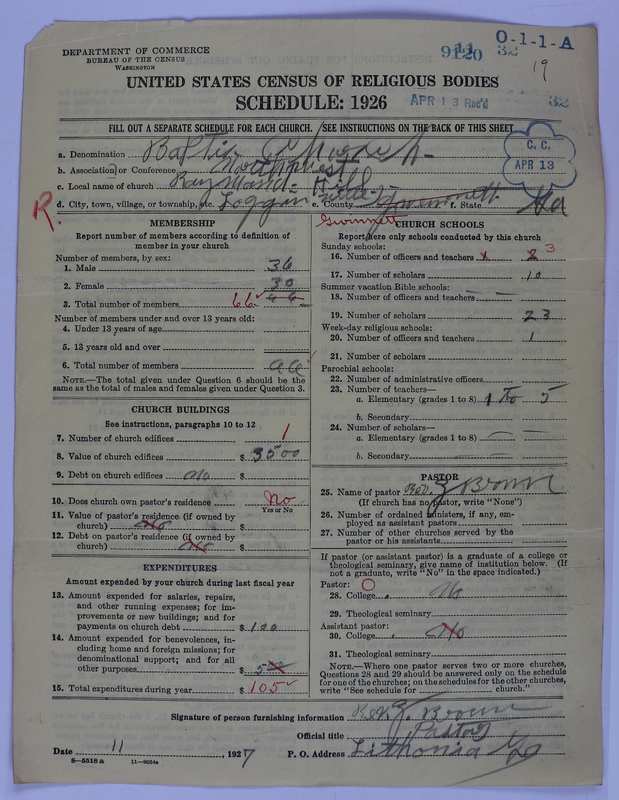 DEPARTMENT OF COMMERCE
BUREAU OF THE CENSUS
WASHINGTON
O-1-1-A
32
19
UNITED STATES CENSUS OF RELIGIOUS BODIES
SCHEDULE: 1926
APR 13 Rec'd
32
FILL OUT A SEPARATE SCHEDULE FOR EACH CHURCH. (SEE INSTRUCTIONS ON THE BACK OF THIS SHEET
C. C.
APR 13
a. Denomination Baptis Church
b. Association or Conference Northwest
c. Local name of church
d. City, town, village, or township, etc. Loggin ville e. County Gwinnett f. State Ga
R.
Gwinnett
MEMBERSHIP
Report number of members according to definition of
member in your church
Number of members, by sex:
1. Male 36
2. Female 30
3. Total number of members 66
Number of members under and over 13 years old:
4. Under 13 years of age
5. 13 years old and over
6. Total number of members
NOTE.—The total given under Question 6 should be the
same as the total of males and females given under Question 3.
CHURCH BUILDINGS
See instructions, paragraphs 10 to 12
7. Number of church edifices 1
8. Value of church edifices $ 3500
9. Debt on church edifices No $
10. Does church own pastor's residence No
Yes or No
11. Value of pastor's residence (if owned by
church) No $
12. Debt on pastor's residence (if owned by
church) No $
EXPENDITURES
Amount expended by your church during last fiscal year
13. Amount expended for salaries, repairs,
and other running expenses; for im-
provements or new buildings; and for
payments on church debt $ 100
14. Amount expended for benevolences, in-
cluding home and foreign missions; for
denominational support; and for all
other purposes $ 5
15. Total expenditures during year $ 105
CHURCH SCHOOLS
Report here only schools conducted by this church
Sunday schools:
16. Number of officers and teachers 3
17. Number of scholars 10
Summer vacation Bible schools:
18. Number of officers and teachers
19. Number of scholars 23
Week-day religious schools:
20. Number of officers and teachers 1
21. Number of scholars
Parochial schools:
22. Number of administrative officers
23. Number of teachers—
a. Elementary (grades 1 to 8) 1 to 5
b. Secondary
24. Number of scholars—
a. Elementary (grades 1 to 8)
b. Secondary
PASTOR
25. Name of pastor Rev. Z Brown
(If church has no pastor, write "None")
26. Number of ordained ministers, if any, em-
ployed as assistant pastors
27. Number of other churches served by the
pastor or his assistants
If pastor (or assistant pastor) is a graduate of a college or
theological seminary, give name of institution below. (If
not a graduate, write "No" in the space indicated.)
Pastor: O
28. College No
29. Theological seminary
Assistant pastor:
30. College No
31. Theological seminary
NOTE.—Where one pastor serves two or more churches,
Questions 28 and 29 should be answered only on the schedule
for one of the churches; on the schedules for the other churches,
write "See schedule for church."
Signature of person furnishing information Rev. Z. Brown
Official title Pastor
Date 11 1927 P. O. Address Lithonia Ga
8—5518 a 11—9054a